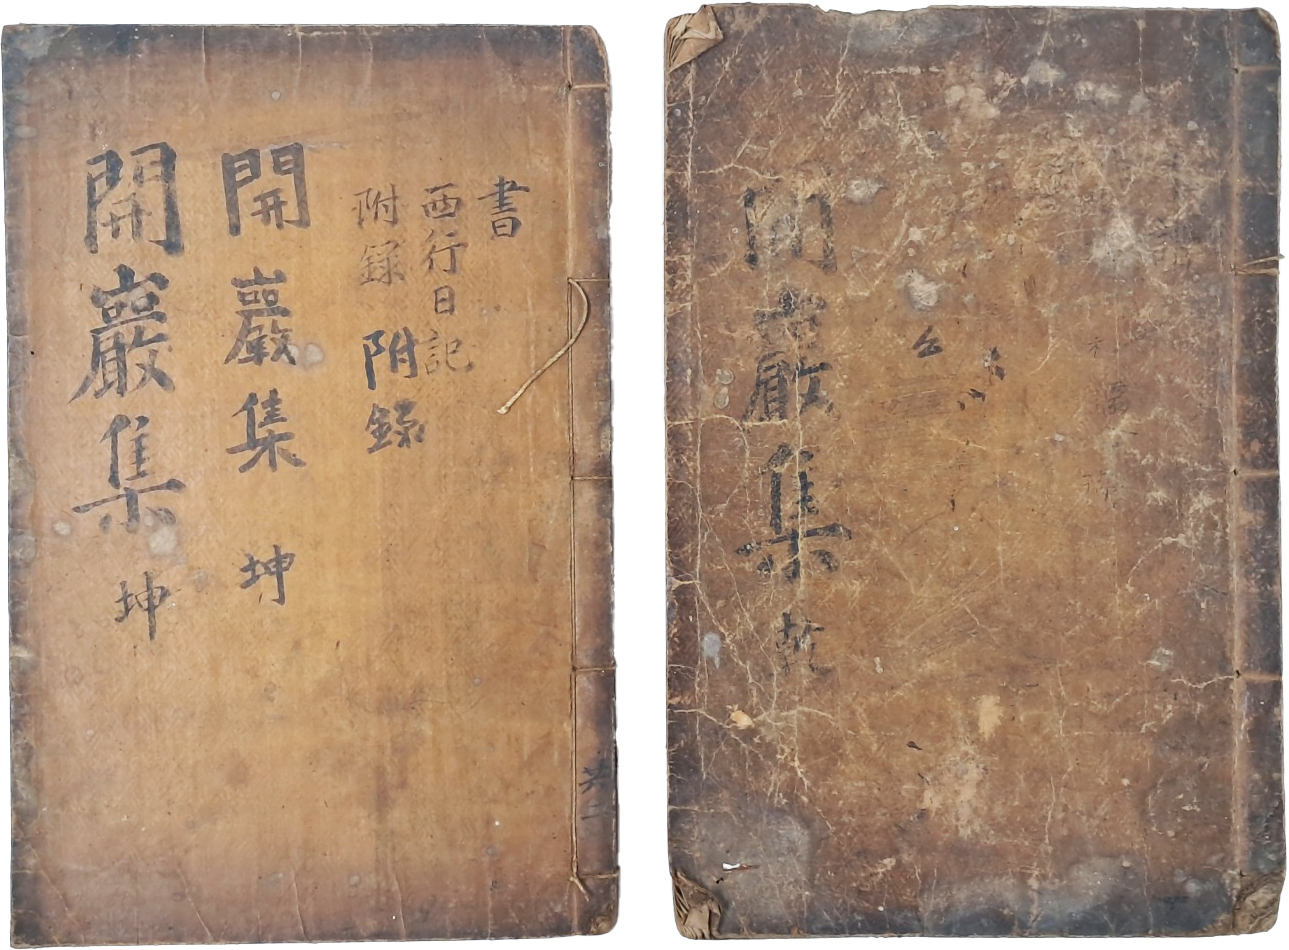 書
西行日記
附錄
附錄
開巖集 坤
開巖集 坤
開巖集 乾